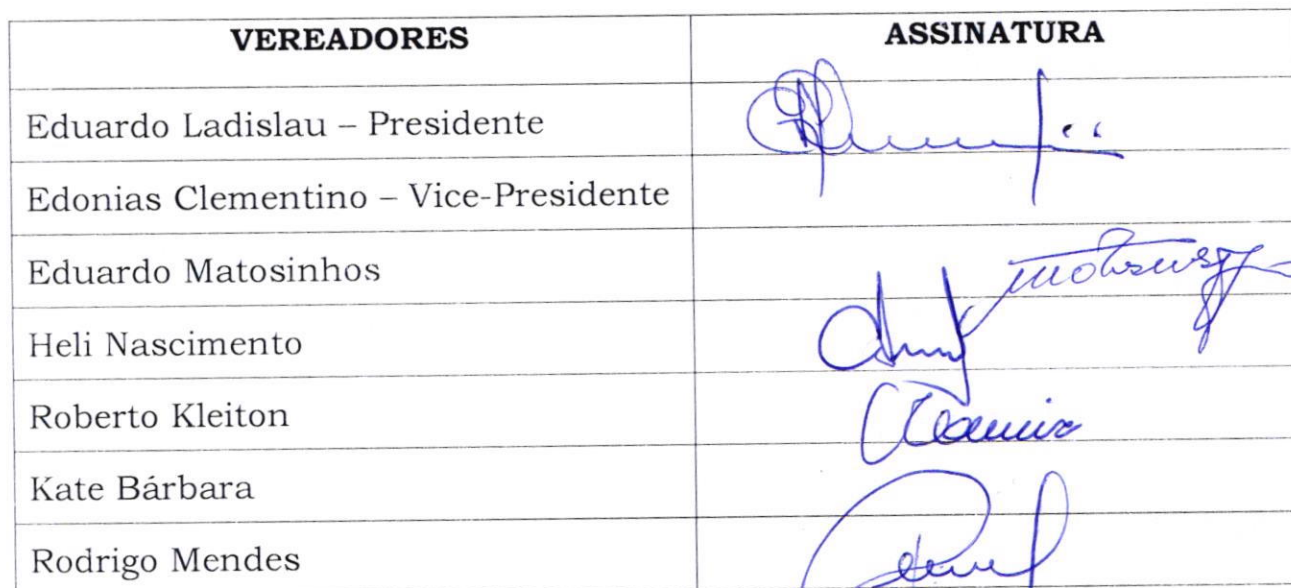 VEREADORES ASSINATURA
Eduardo Ladislau – Presidente
Edonias Clementino – Vice-Presidente
Eduardo Matosinhos
Heli Nascimento
Roberto Kleiton
Kate Bárbara
Rodrigo Mendes